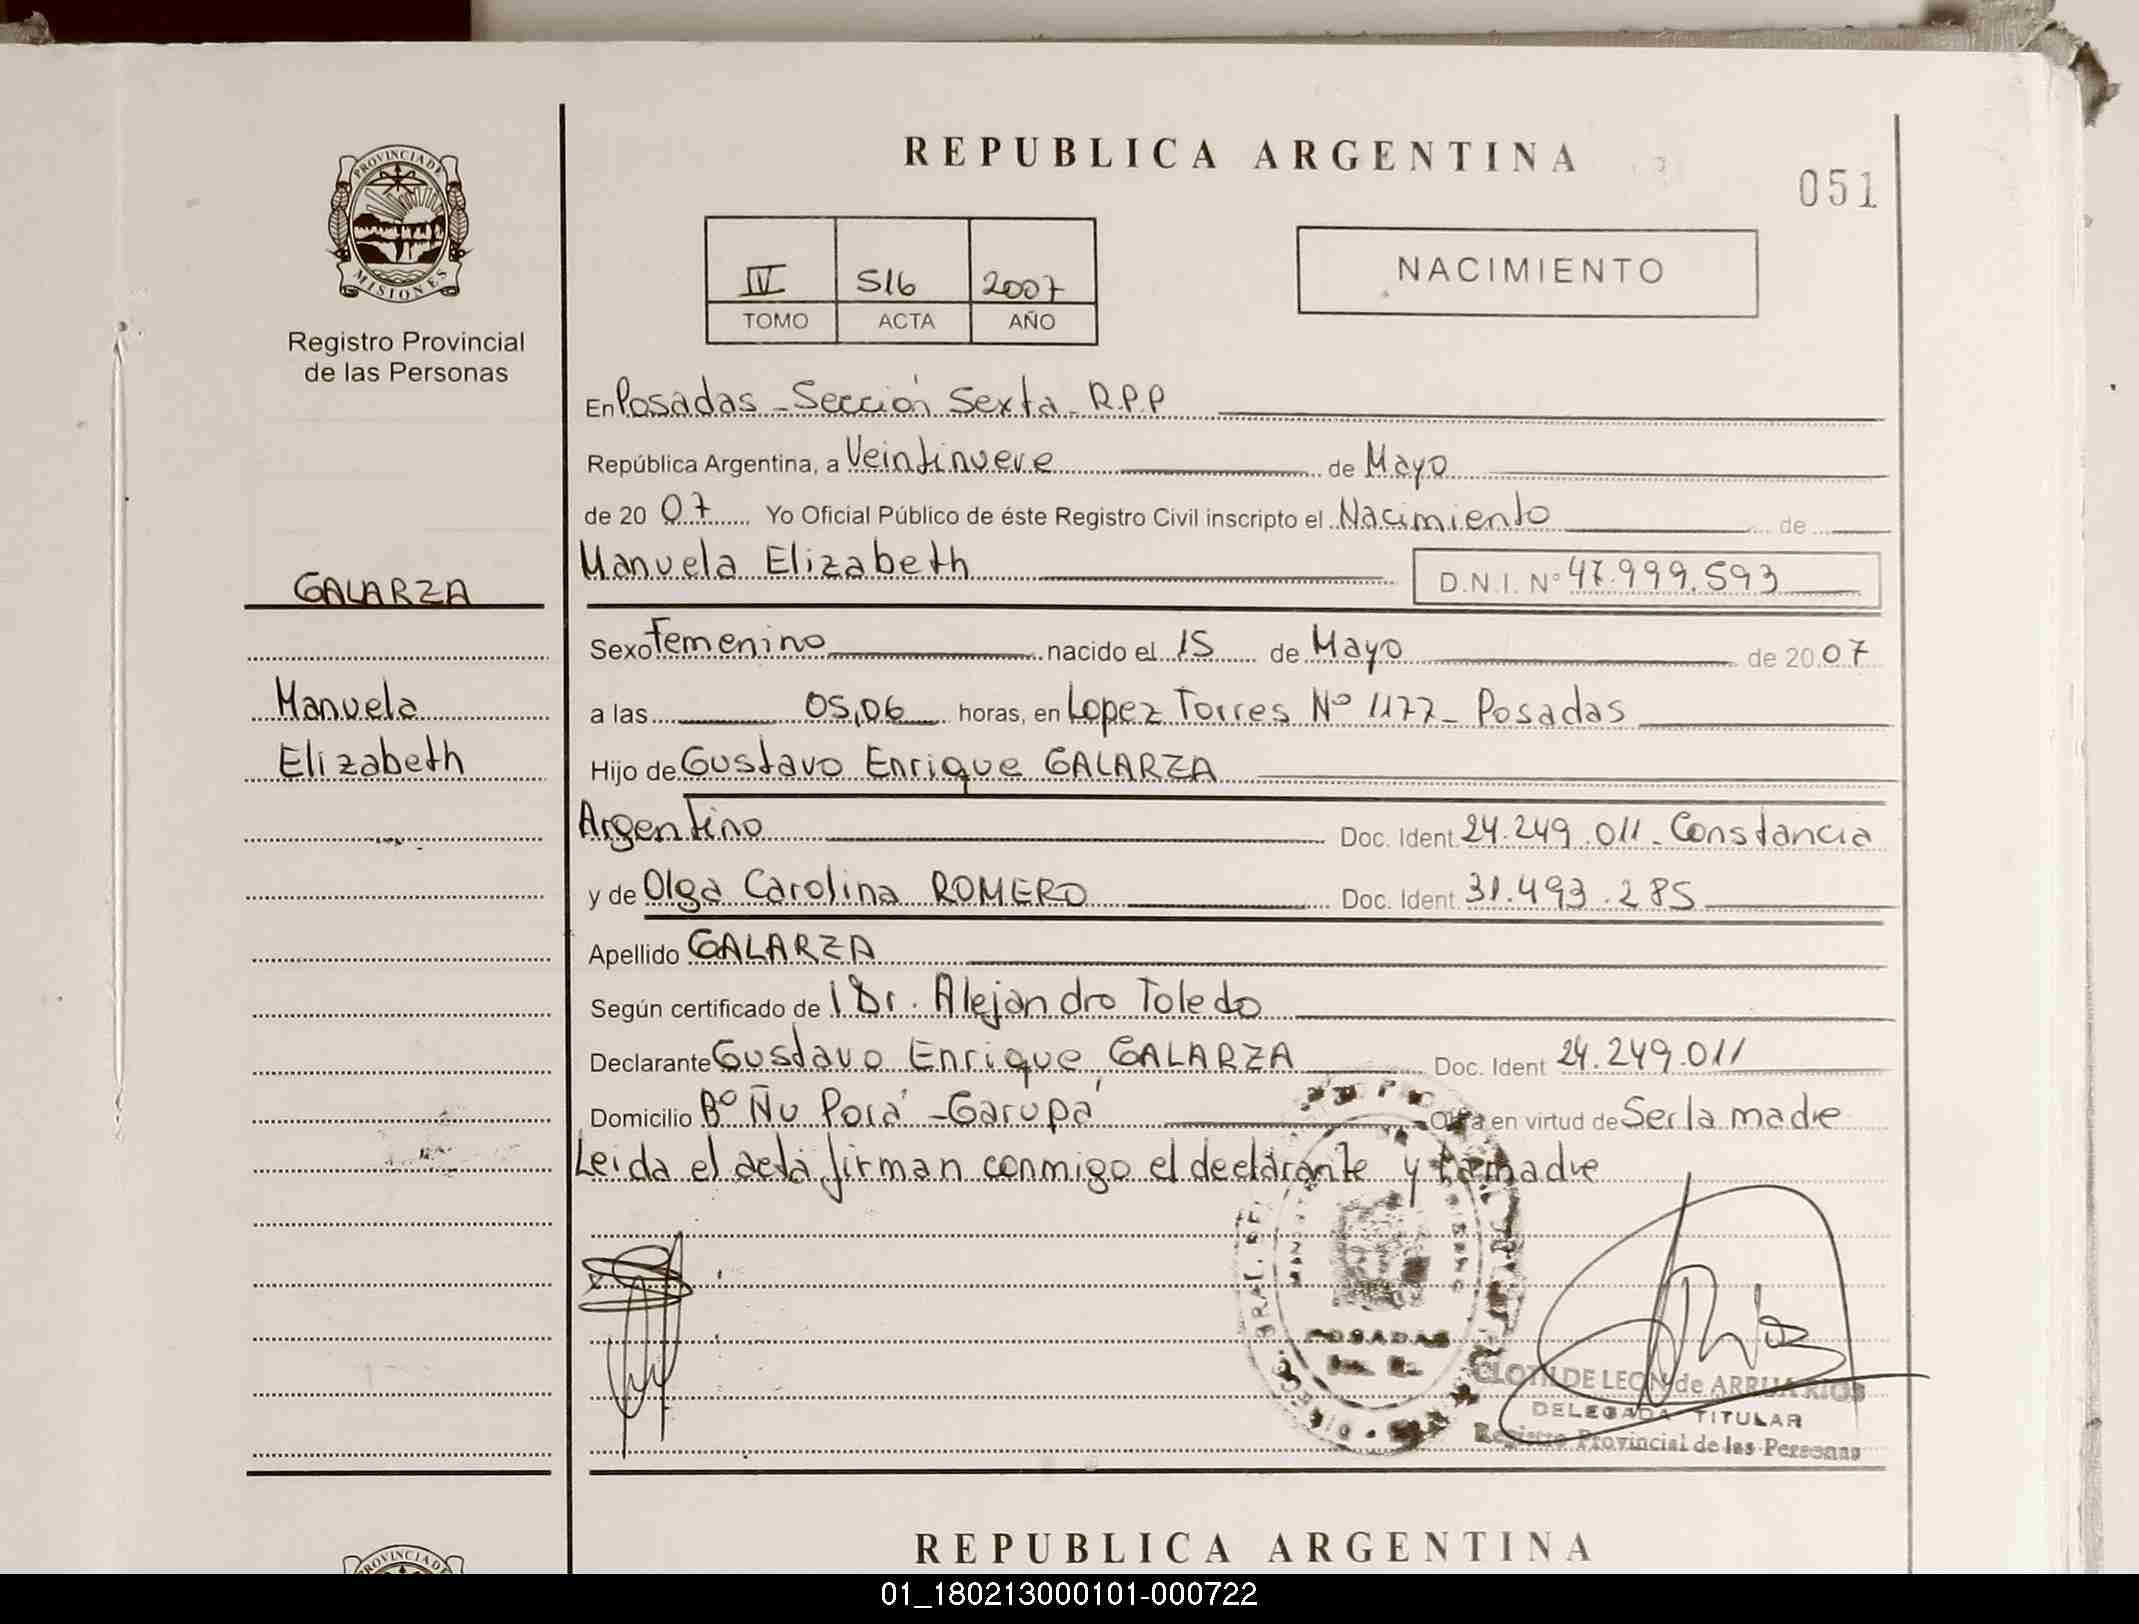 REPUBLICA ARGENTINA
051
PROVINCIA DE
MISIONES
Registro Provincial
de las Personas
IV 516 2007
TOMO ACTA AÑO
NACIMIENTO
En Posadas - Sección Sexta - R.P.P
República Argentina, a Veintinueve de Mayo
de 20 07 Yo Oficial Público de éste Registro Civil inscripto el Nacimiento de
Manuela Elizabeth D.N.I. Nº 47.999.593
GALARZA
Sexo Femenino nacido el 15 de Mayo de 20 07
Manuela
Elizabeth
a las 05,06 horas, en Lopez Torres Nº 1177 - Posadas
Hijo de Gustavo Enrique GALARZA
Argentino Doc. Ident. 24.249.011 - Constancia
y de Olga Carolina ROMERO Doc. Ident. 31.493.285
Apellido GALARZA
Según certificado de 1 Dr. Alejandro Toledo
Declarante Gustavo Enrique GALARZA Doc. Ident 24.249.011
Domicilio Bº Ñu Porá - Garupá Obra en virtud de Ser la madre
Leida el acta firman conmigo el declarante y la madre
POSADAS
CLOTILDE LEON de ARRUA RIOS
DELEGADA TITULAR
Registro Provincial de las Personas
REPUBLICA ARGENTINA
PROVINCIA DE
01_180213000101-000722